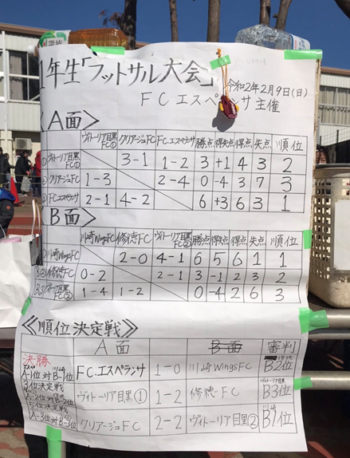 1年生「フットサル大会」
令和2年2月9日(日)
FCエスペランサ主催
A面
ヴィトーリア目黒FC① クリアージュFC FCエスペランサ 勝点 得失点 得点 失点 順位
3-1 1-2 3 +1 4 3 2
クリアージュFC 1-3 2-4 0 -4 3 7 3
FCエスペランサ 2-1 4-2 6 +3 6 3 1
B面
川崎WingsFC 修徳FC ヴィトーリア目黒FC② 勝点 得失点 得点 失点 順位
川崎WingsFC 2-0 4-1 6 5 6 1 1
修徳FC 0-2 2-1 3 -1 2 3 2
1-4 1-2 0 -4 2 6 3
≪順位決定戦≫
A面 B面 審判
決勝 A-1位対B-1位 FCエスペランサ 1-0 川崎WingsFC B2位
3位決定戦 ヴィトーリア目黒① 1-2 修徳FC B3位
クリアージュFC 2-2 ヴィトーリア目黒② B1位